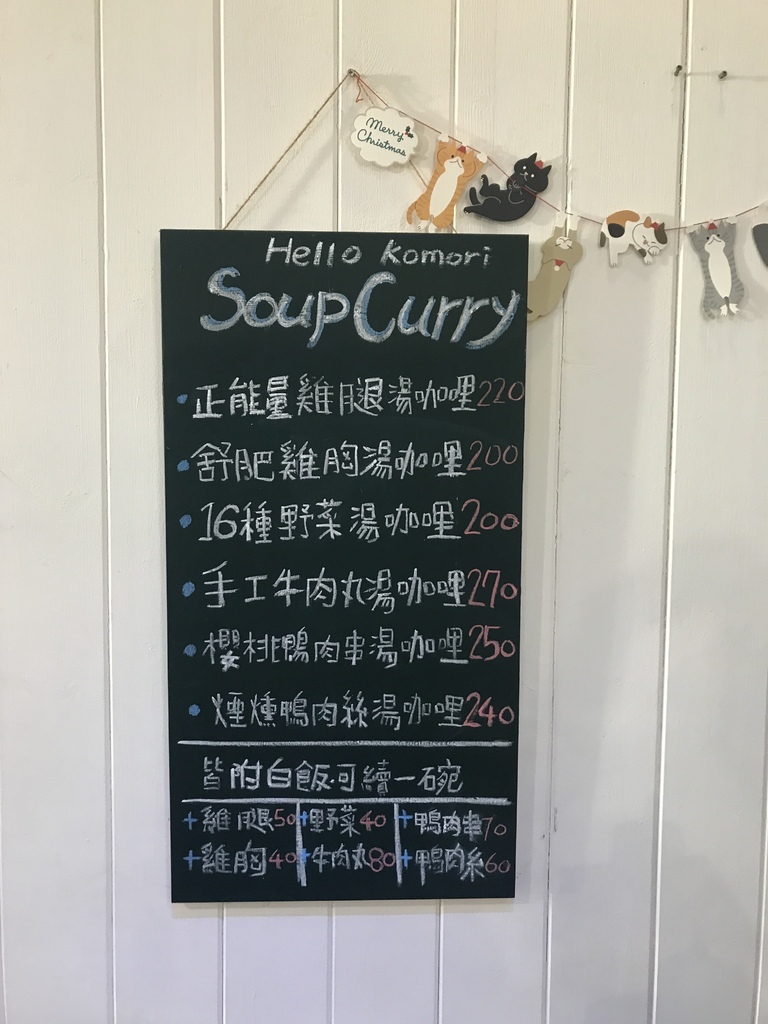 Merry
Christmas
Hello Komori
Soup Curry
正能量雞腿湯咖哩220
舒肥雞胸湯咖哩200
16種野菜湯咖哩200
手工牛肉丸湯咖哩270
櫻桃鴨肉串湯咖哩250
煙燻鴨肉絲湯咖哩240
皆附白飯可續一碗
+雞腿50 +野菜40 +鴨肉串70
+雞胸40 +牛肉丸80 +鴨肉糸60